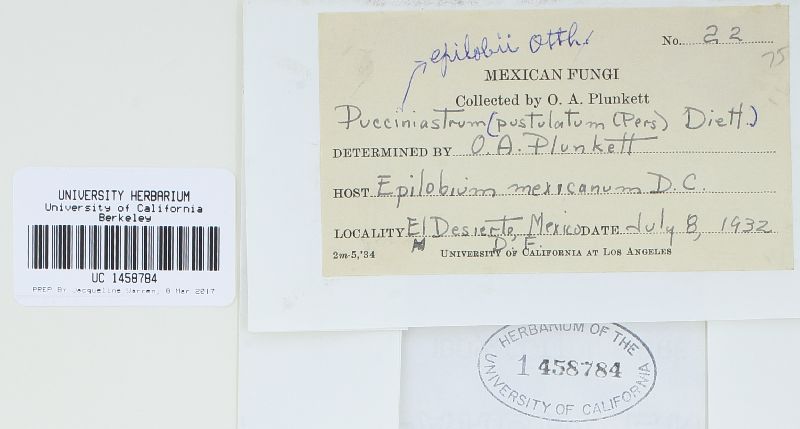 epilobii Otth.
No. 22
75
MEXICAN FUNGI
Collected by O. A. Plunkett
Pucciniastrum (pustulatum (Pers) Dietl.)
DETERMINED BY O. A. Plunkett
HOST Epilobium mexicanum D.C.
LOCALITY El Desierto, Mexico DATE July 8, 1932
D. F.
2m-5,'34 UNIVERSITY OF CALIFORNIA AT LOS ANGELES
UNIVERSITY HERBARIUM
University of California
Berkeley
UC 1458784
PREP BY Jacqueline Warren, 8 Mar 2017
HERBARIUM OF THE
1458784
UNIVERSITY OF CALIFORNIA